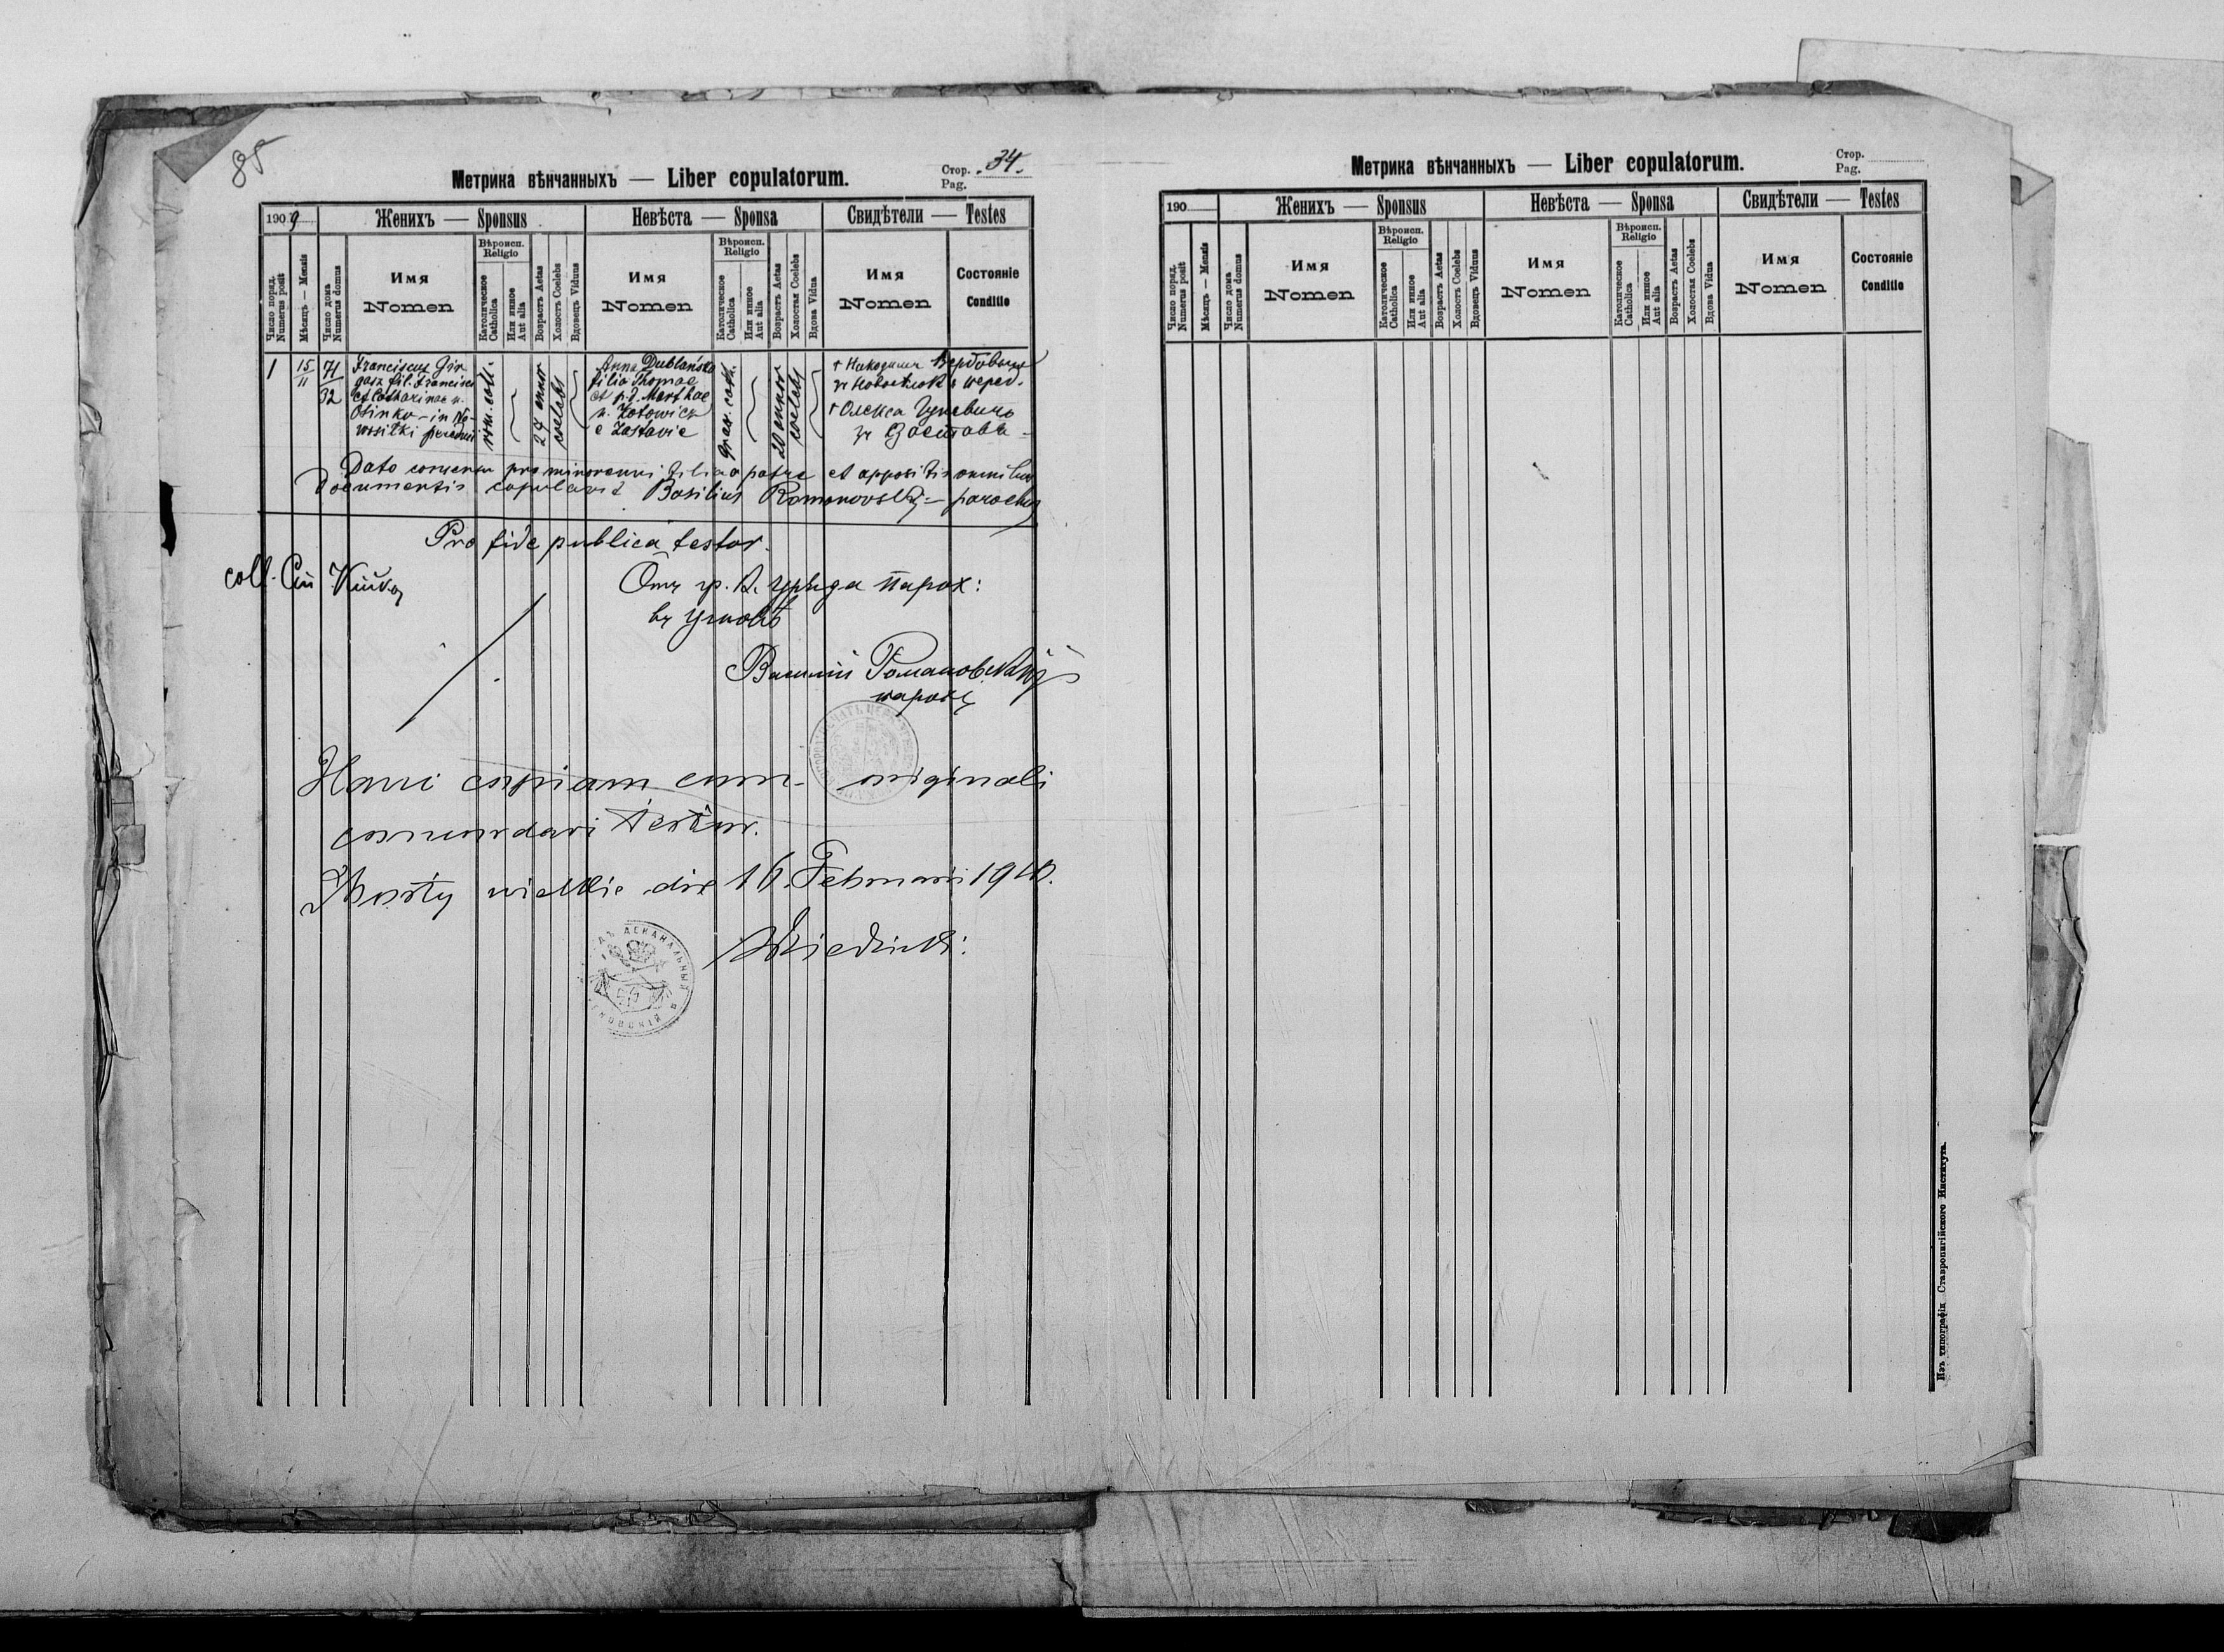 85
Метрика вѣнчанныхъ — Liber copulatorum.
Стор. 34.
Pag.
1909
Женихъ — Sponsus
Невѣста — Sponsa
Свидѣтели — Testes
Число поряд.
Numerus posit
Мѣсяцъ — Mensis
Число дома
Numerus domus
Имя
Nomen
Вѣроисп.
Religio
Католическое
Catholica
Или инное
Aut alia
Возрастъ Aetas
Холостъ Coelebs
Вдовецъ Viduus
Имя
Nomen
Вѣроисп.
Religio
Католическое
Catholica
Или инное
Aut alia
Возрастъ Aetas
Холостая Coelebs
Вдова Vidua
Имя
Nomen
Состояніе
Conditio
1
15/11
71
32
Franciscus
fil. Francisci
et Catharinae n.
in
rom. cath.
24 annor
coelebs
Anna Dublańska
filia Thomae
et p.d. Marthae
n. Kotowicz
e Zastavie
graec. cath.
20 annor
coelebs
† Никодимъ
† Олекса
Dato consensu pro minorenni filia a patre et appositis omnibus
documentis copulavit Basilius Romanovskij — parochus
Pro fide publica testor.
coll.
парох:
въ Угновѣ
Василій Романовскій
парохъ
Hanc copiam cum originali
concordari testor.
Mosty wielkie die 16. Februarii 1910.
ДЕКАНАЛЬНЫЙ
Метрика вѣнчанныхъ — Liber copulatorum.
Стор.
Pag.
190
Женихъ — Sponsus
Невѣста — Sponsa
Свидѣтели — Testes
Число поряд.
Numerus posit
Мѣсяцъ — Mensis
Число дома
Numerus domus
Имя
Nomen
Вѣроисп.
Religio
Католическое
Catholica
Или инное
Aut alia
Возрастъ Aetas
Холостъ Coelebs
Вдовецъ Viduus
Имя
Nomen
Вѣроисп.
Religio
Католическое
Catholica
Или инное
Aut alia
Возрастъ Aetas
Холостая Coelebs
Вдова Vidua
Имя
Nomen
Состояніе
Conditio
Изъ типографіи Ставропигійского Института.